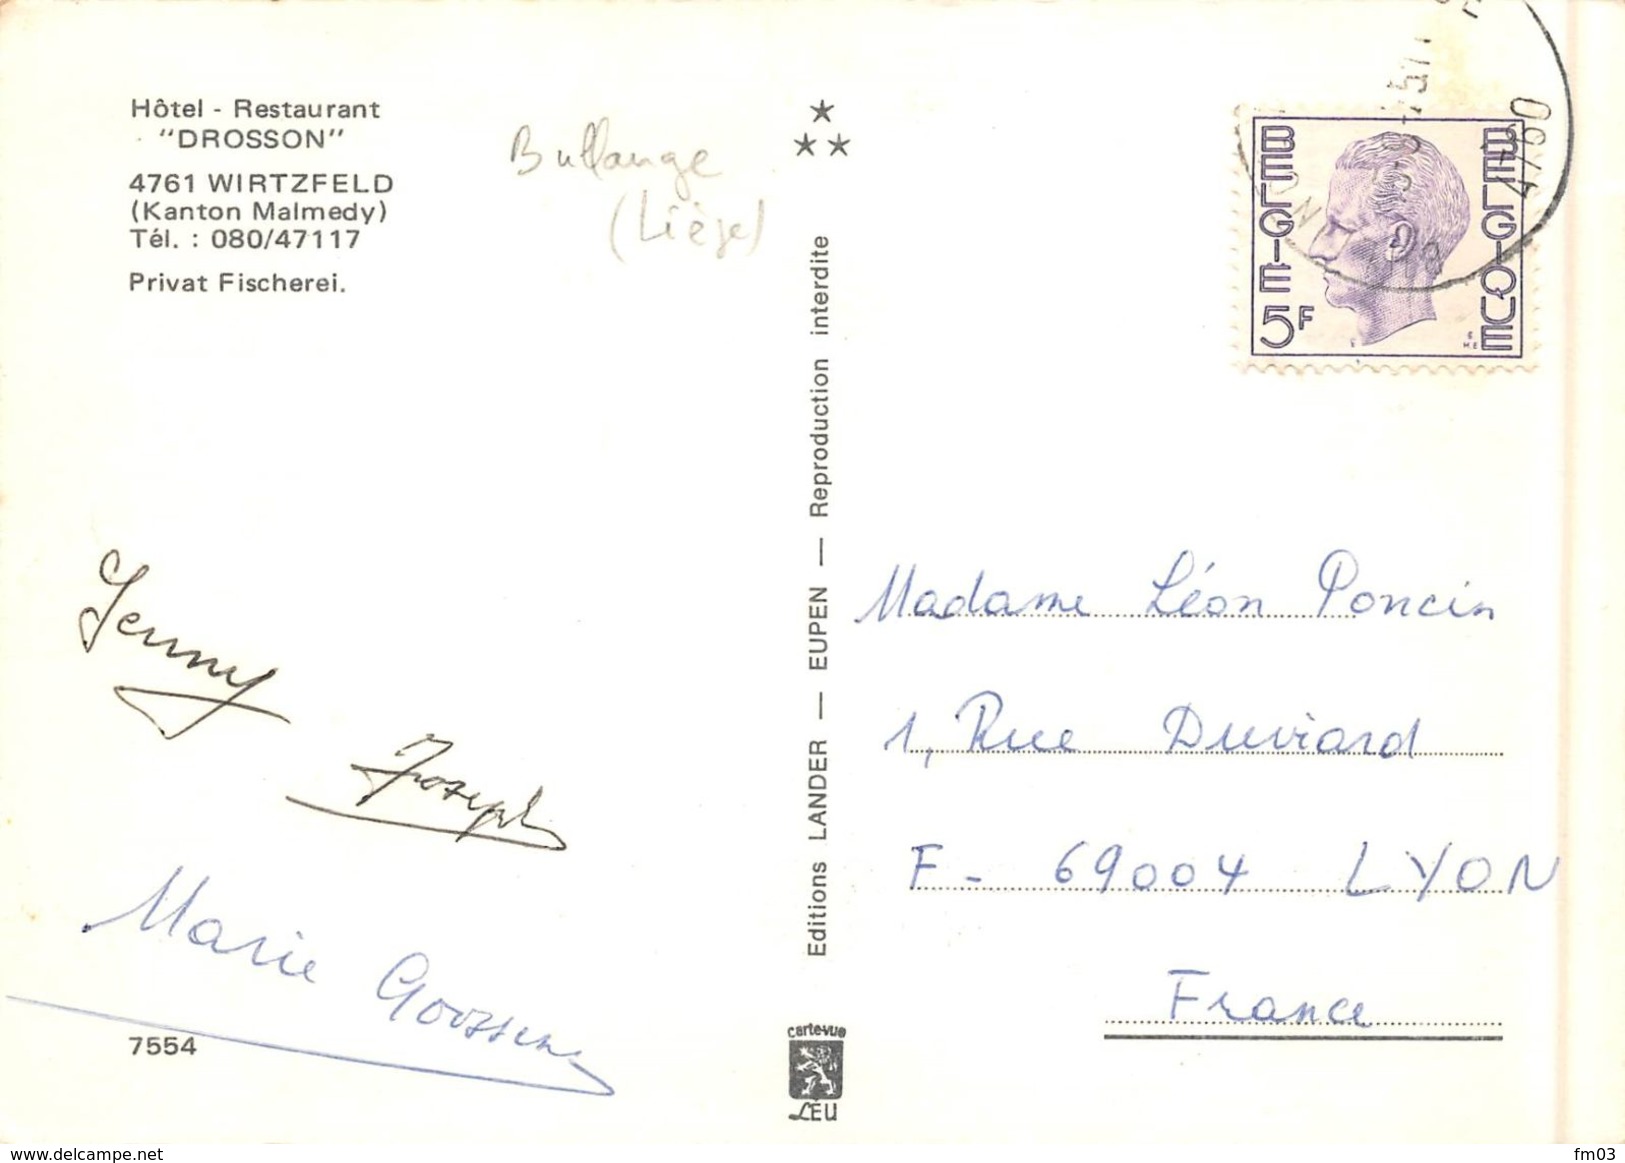 Hôtel - Restaurant
"DROSSON"
4761 WIRTZFELD
(Kanton Malmedy)
Tél. : 080/47117
Privat Fischerei.
Bullange
(Liège)
Jenny
Joseph
Marie Goossens
7554
Editions LANDER — EUPEN — Reproduction interdite
carte-vue
LÉU
BELGIE 5F
BELGIQUE
4760
Madame Léon Poncin
1, Rue Duviard
F - 69004 LYON
France
www.delcampe.net
fm03